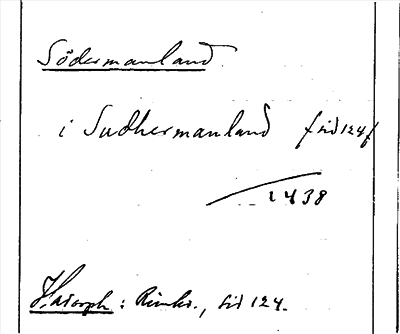 Södermanland
i Sudhermanland (sid 124)
1438
Hadorph: Rimkr., sid 124.